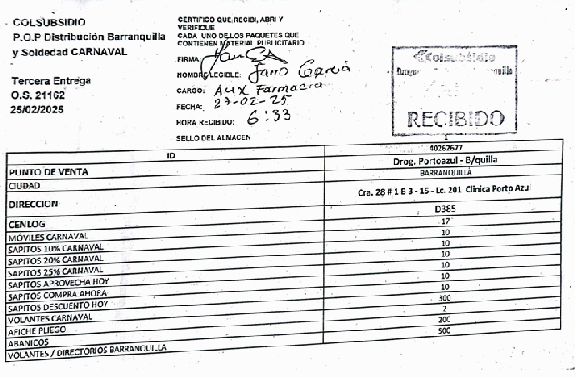 COLSUBSIDIO
P.O.P Distribución Barranquilla
y Soledad CARNAVAL
Tercera Entrega
O.S. 21162
25/02/2025
CERTIFICO QUE RECIBI, ABRI Y
VERIFIQUE
CADA UNO DE LOS PAQUETES QUE
CONTIENEN MATERIAL PUBLICITARIO
FIRMA:
NOMBRE LEGIBLE: García
CARGO: Aux Farmacia
FECHA: 27-02-25
HORA RECIBIDO: 6:33
SELLO DEL ALMACEN
Colsubsidio
RECIBIDO
ID 40267677
PUNTO DE VENTA Drog. Portoazul - B/quilla
CIUDAD BARRANQUILLA
DIRECCION Cra. 28 # 1 E 3 - 15 - Lc. 201 Clinica Porto Azul
CENLOG D385
MÓVILES CARNAVAL 17
SAPITOS 10% CARNAVAL 10
SAPITOS 20% CARNAVAL 10
SAPITOS 25% CARNAVAL 10
SAPITOS APROVECHA HOY 10
SAPITOS COMPRA AHORA 10
SAPITOS DESCUENTO HOY 10
VOLANTES CARNAVAL 300
AFICHE PLIEGO 2
ABANICOS 200
VOLANTES / DIRECTORIOS BARRANQUILLA 500